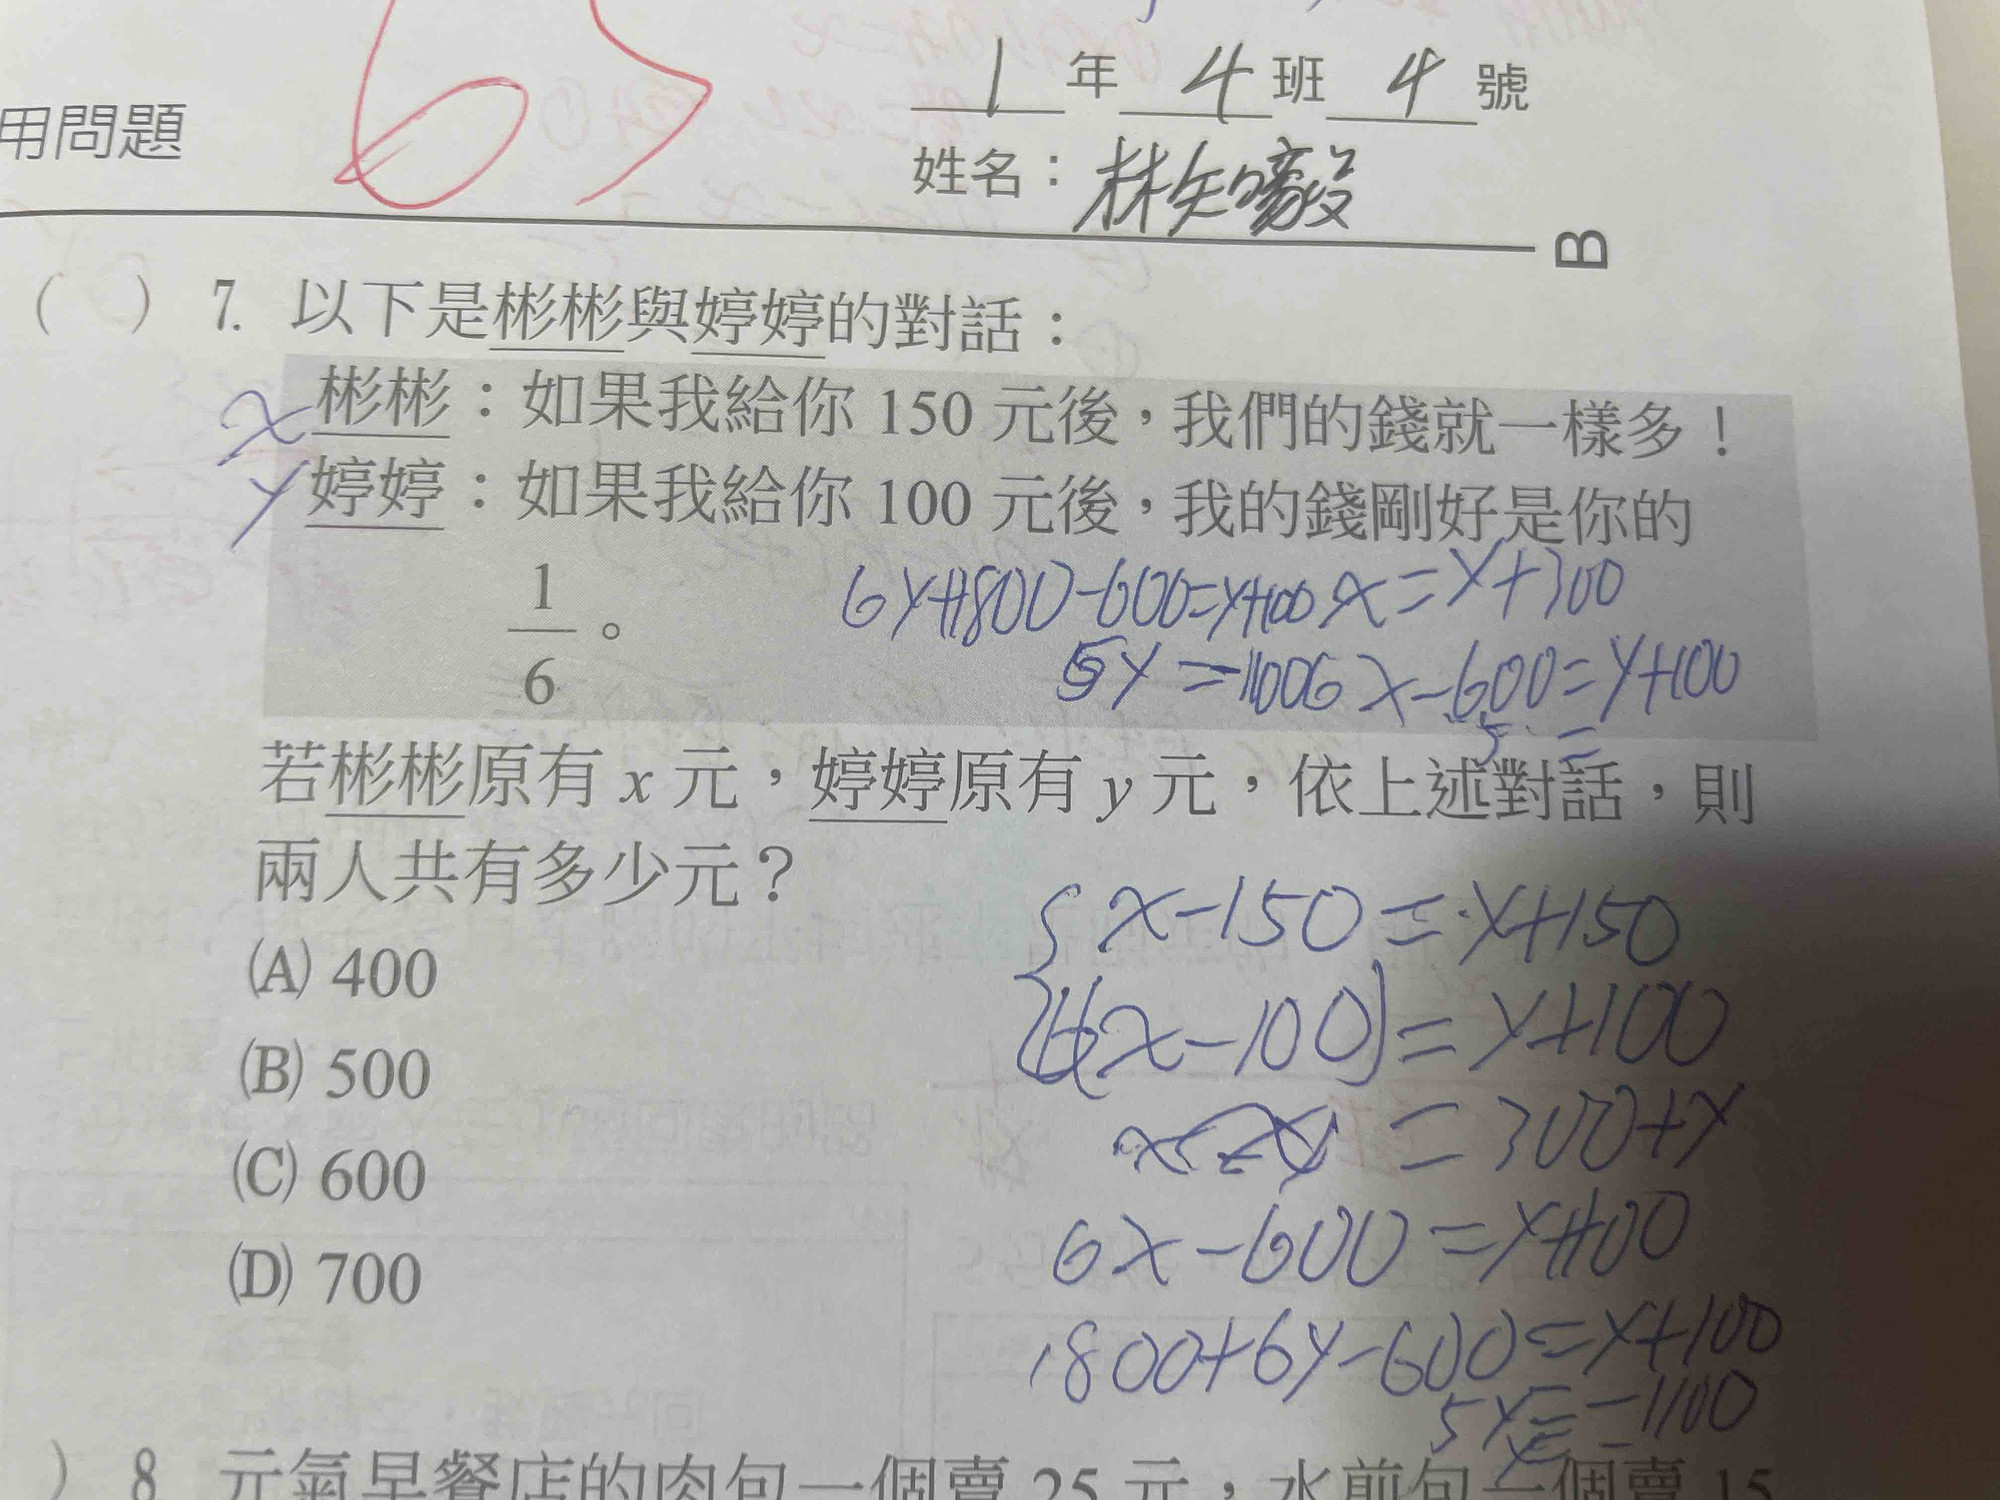 65
1 年 4 班 4 號
用問題
姓名：林矢口毅
B
( ) 7. 以下是彬彬與婷婷的對話：
x 彬彬：如果我給你 150 元後，我們的錢就一樣多！
y 婷婷：如果我給你 100 元後，我的錢剛好是你的
1/6。
6y+1800-600=y+100 x=y+300
5y=-1100 6x-600=y+100
若彬彬原有 x 元，婷婷原有 y 元，依上述對話，則
兩人共有多少元？
(A) 400
(B) 500
(C) 600
(D) 700
x-150=y+150
6(x-100)=y+100
=300+y
6x-600=y+100
1800+6y-600=y+100
5y=-1100
) 8. 元氣早餐店的肉包一個賣 25 元，水煎包一個賣 15